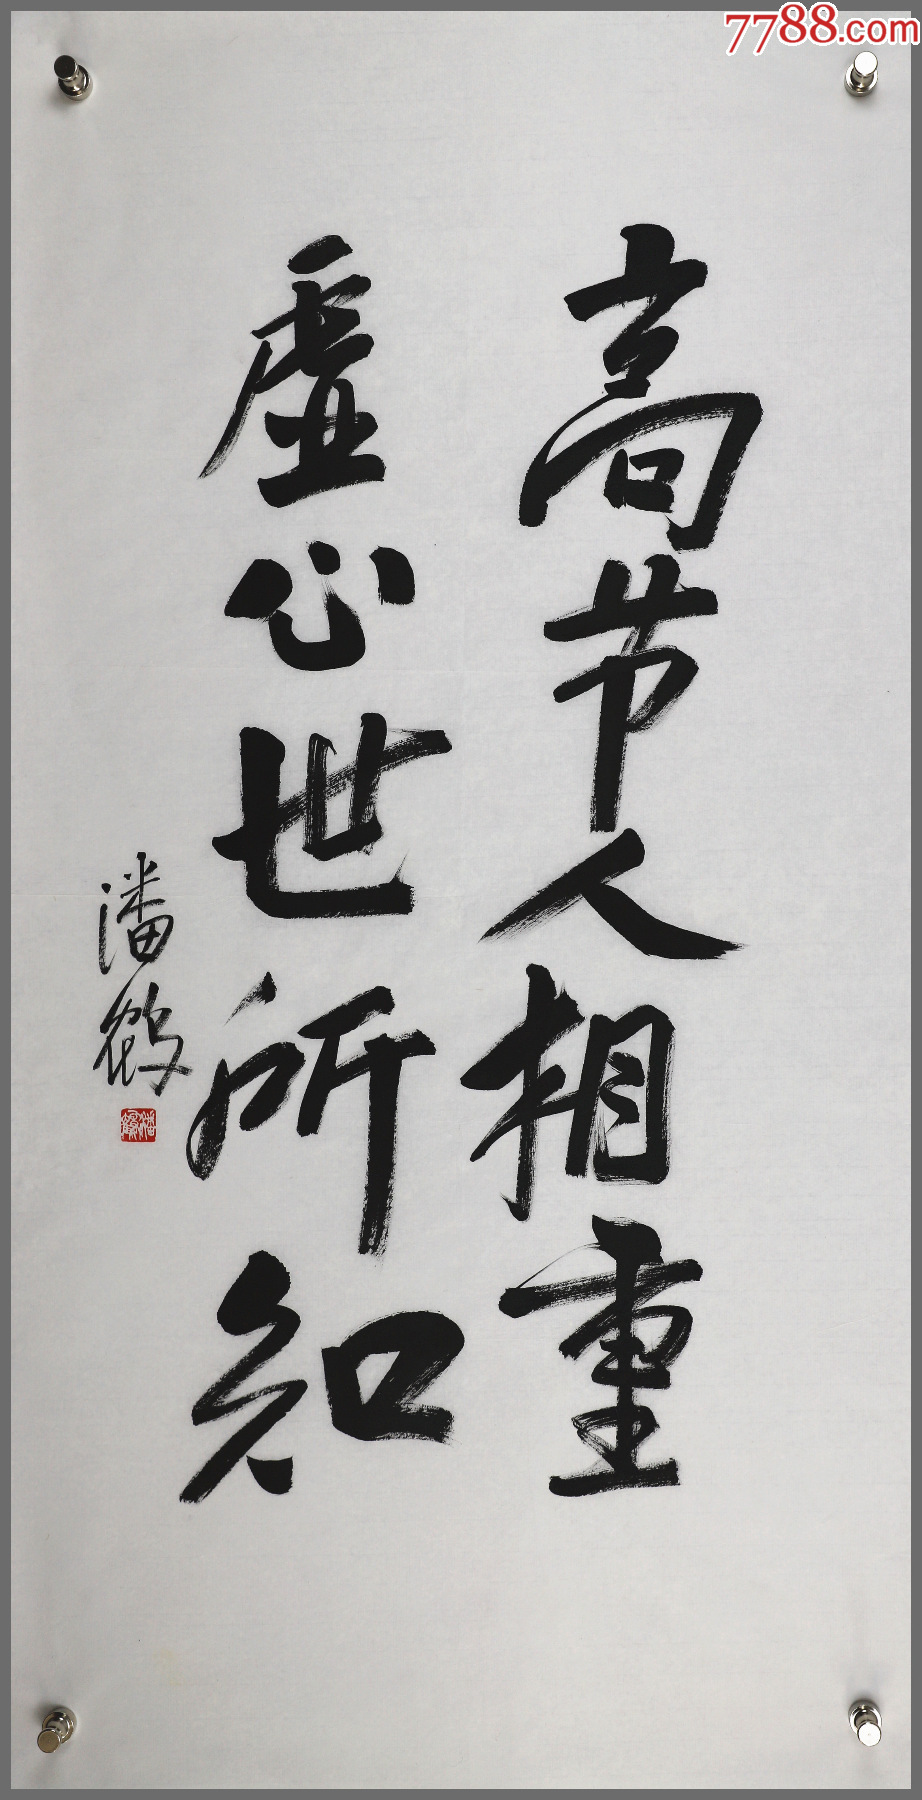 7788.com
高节人相重
虚心世所知
潘鹤
潘鹤